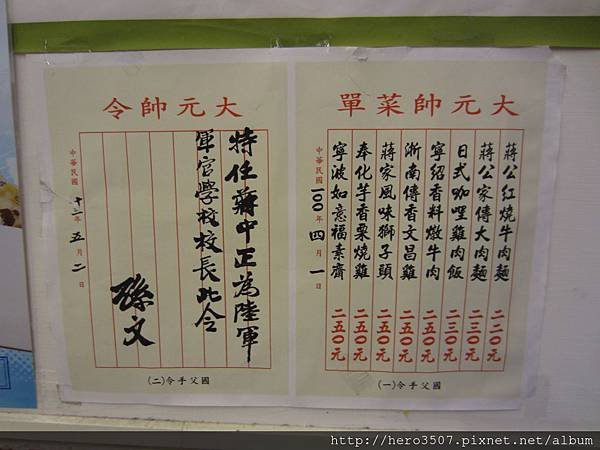 大元帥菜單
蔣公紅燒牛肉麵 二二〇元
蔣公家傳大肉麵 二三〇元
日式咖哩雞肉飯 二三〇元
寧紹香料燉牛肉 二五〇元
浙南傳香文昌雞 二五〇元
蔣家風味獅子頭 二五〇元
奉化芋香栗燒雞 二五〇元
寧波如意福素齋 二五〇元
中華民國一〇〇年四月一日
國父手令(一)
大元帥令
特任蔣中正為陸軍
軍官學校校長此令
孫文
中華民國十三年五月二日
國父手令(二)
http://hero3507.pixnet.net/album